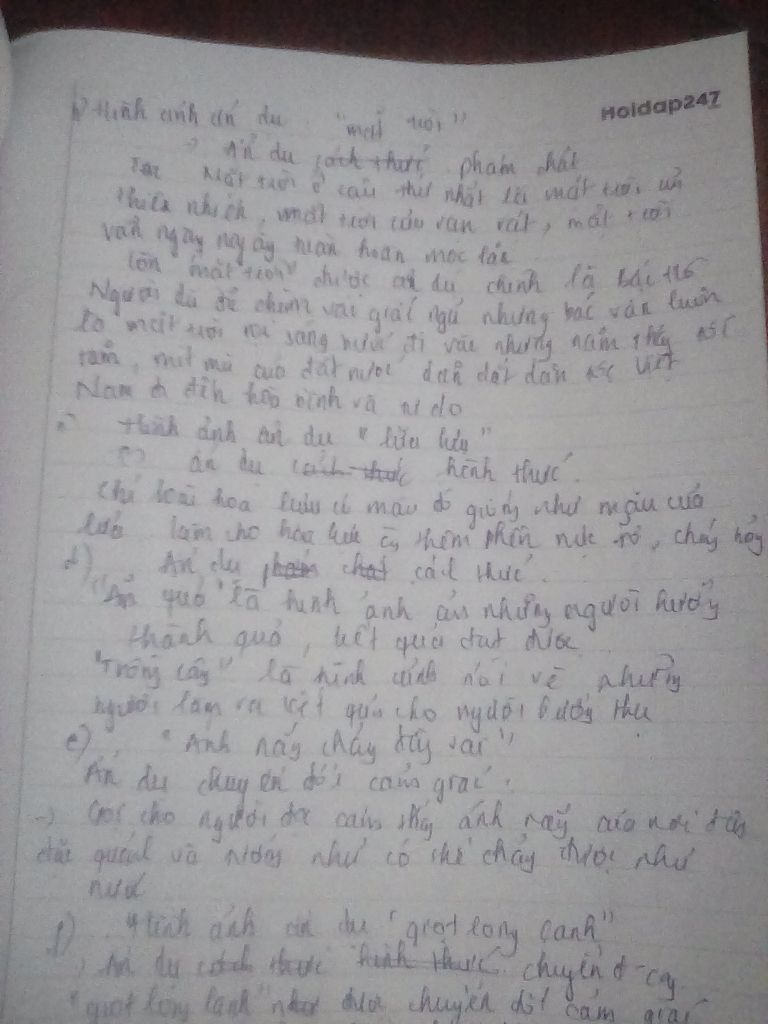 Hoidap247
b) Hình ảnh ẩn dụ "mặt trời"
Ẩn dụ cách thức phẩm chất
Mặt trời ở câu thứ nhất là mặt trời
thiên nhiên, mặt trời của vạn vật, mặt trời
vẫn ngày ngày tuần hoàn mọc lặn
Còn "mặt trời" được ẩn dụ chính là Bác Hồ
Người dù đã chìm vào giấc ngủ nhưng bác vẫn luôn
là mặt trời sáng
năm, mịt mù của đất nước dẫn dắt dân tộc Việt
Nam đi đến hòa bình và tự do
Hình ảnh ẩn dụ "lửa lựu"
ẩn dụ cách thức hình thức.
Chỉ loài hoa lựu có màu đỏ giống như màu của
lửa làm cho hoa lựu thêm phần rực rỡ, cháy bỏng
d) Ẩn dụ phẩm chất cách thức.
"Ăn quả" là hình ảnh những người hưởng
thành quả, kết quả đạt được
"Trồng cây" là hình ảnh nói về những
người làm ra kết quả cho người hưởng thụ
e) "Ánh nắng chảy đầy vai"
Ẩn dụ chuyển đổi cảm giác.
-> Gợi cho người đọc cảm thấy ánh nắng của nơi đây
và như có thể chảy được như
nước
f) Hình ảnh ẩn dụ "giọt long lanh"
Ẩn dụ cách thức hình thức chuyển đ
"giọt long lanh" được chuyển đổi cảm giác